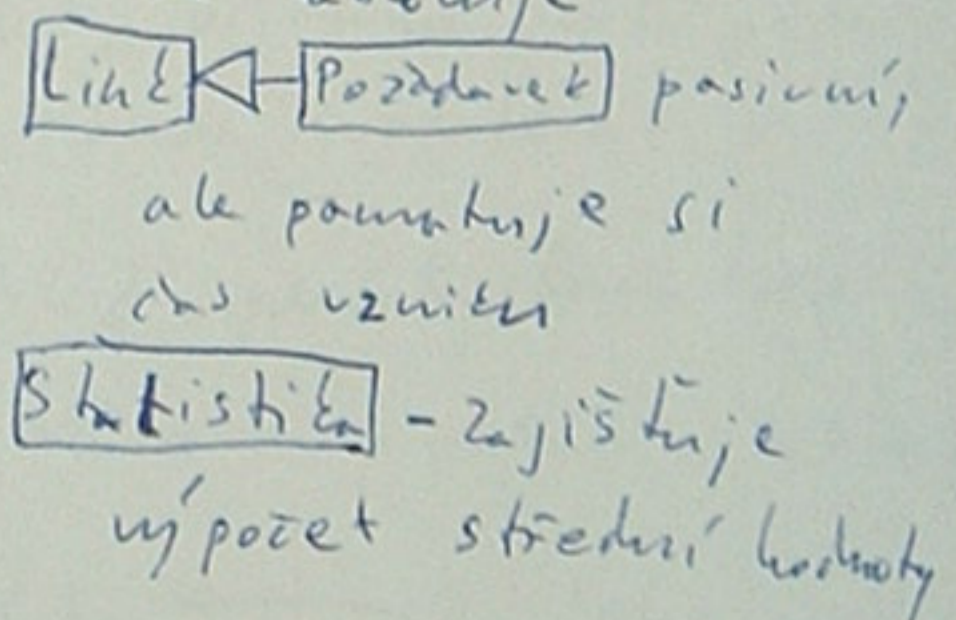 Link Požadavek pasivní,
ale pamatuje si
čas vzniku
Statistika - Zajišťuje
výpočet střední hodnoty